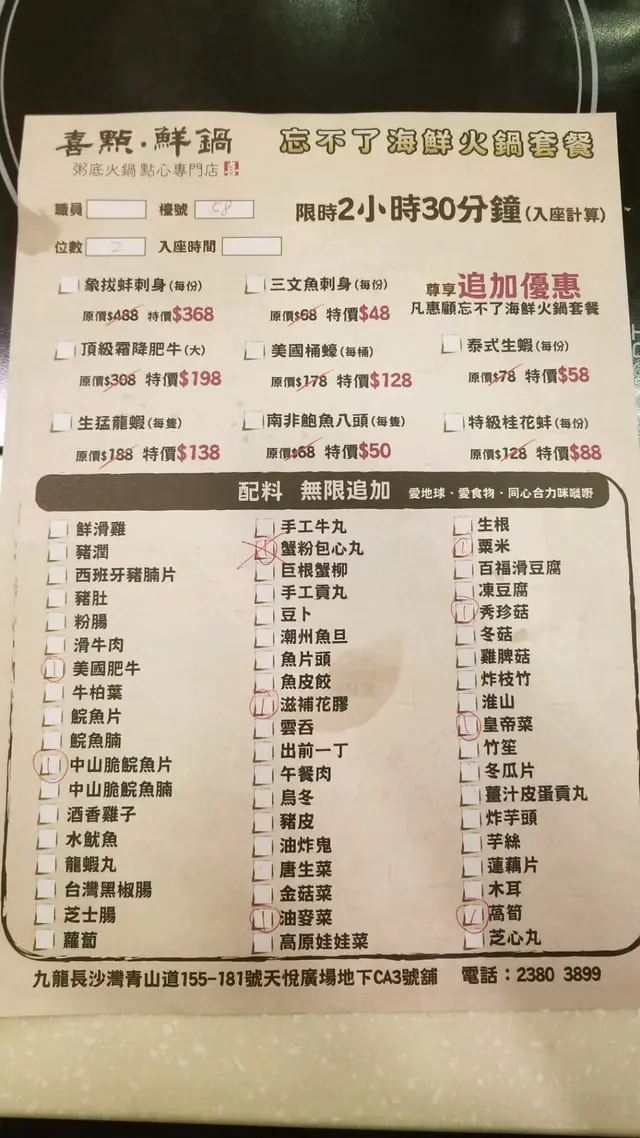 喜點·鮮鍋
忘不了海鮮火鍋套餐
粥底火鍋 點心專門店
職員 檯號 58
限時2小時30分鐘(入座計算)
位數 2 入座時間
象拔蚌刺身(每份)
原價$488 特價$368
三文魚刺身(每份)
原價$68 特價$48
尊享追加優惠
凡惠顧忘不了海鮮火鍋套餐
頂級霜降肥牛(大)
原價$308 特價$198
美國桶蠔(每桶)
原價$178 特價$128
泰式生蝦(每份)
原價$78 特價$58
生猛龍蝦(每隻)
原價$188 特價$138
南非鮑魚八頭(每隻)
原價$68 特價$50
特級桂花蚌(每份)
原價$128 特價$88
配料 無限追加 愛地球·愛食物·同心合力咪嘥嘢
鮮滑雞
豬潤
西班牙豬腩片
豬肚
粉腸
滑牛肉
美國肥牛
牛柏葉
鯇魚片
鯇魚腩
中山脆鯇魚片
中山脆鯇魚腩
酒香雞子
水魷魚
龍蝦丸
台灣黑椒腸
芝士腸
蘿蔔
手工牛丸
蟹粉包心丸
巨根蟹柳
手工貢丸
豆卜
潮州魚旦
魚片頭
魚皮餃
滋補花膠
雲吞
出前一丁
午餐肉
烏冬
豬皮
油炸鬼
唐生菜
金菇菜
油麥菜
高原娃娃菜
生根
粟米
百福滑豆腐
凍豆腐
秀珍菇
冬菇
雞脾菇
炸枝竹
淮山
皇帝菜
竹笙
冬瓜片
薑汁皮蛋貢丸
炸芋頭
芋絲
蓮藕片
木耳
萵筍
芝心丸
九龍長沙灣青山道155-181號天悅廣場地下CA3號舖 電話:2380 3899